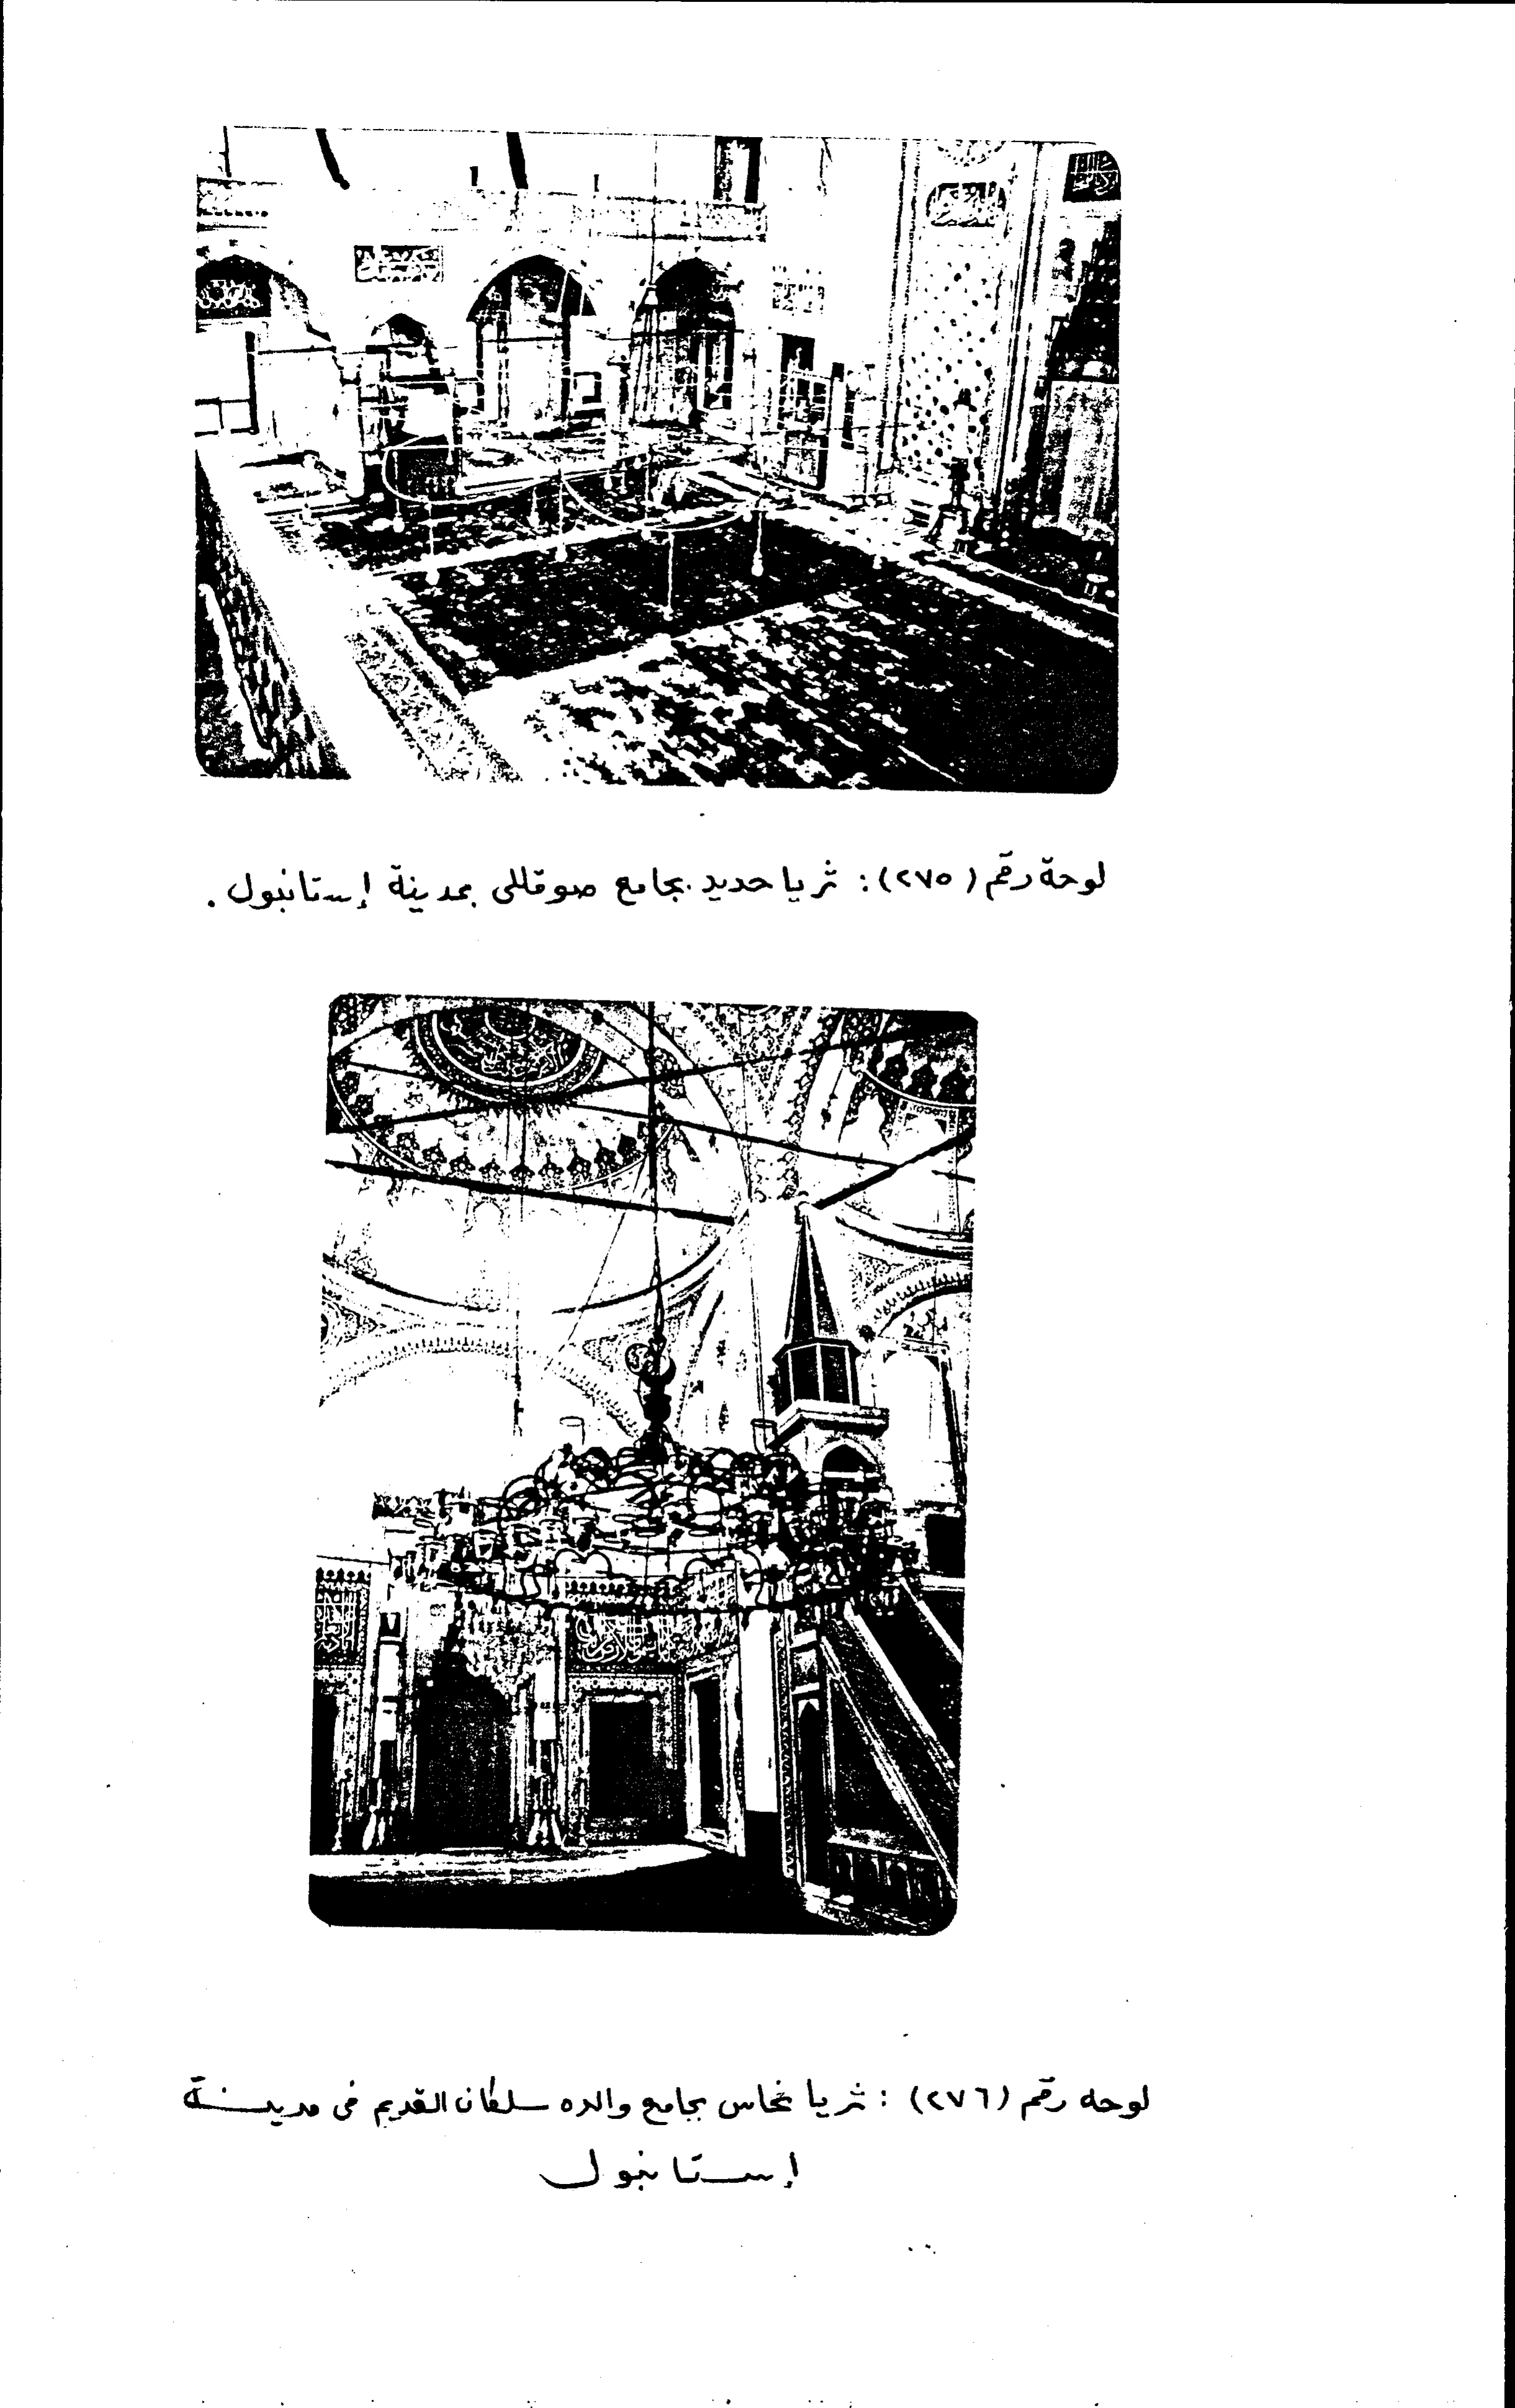 لوحة رقم (٢٧٥) : ثريا حديد بجامع صوقللى بمدينة إستانبول .
لوحه رقم (٢٧٦) : ثريا نحاس بجامع والده سلطان القديم فى مدينة
إستانبول